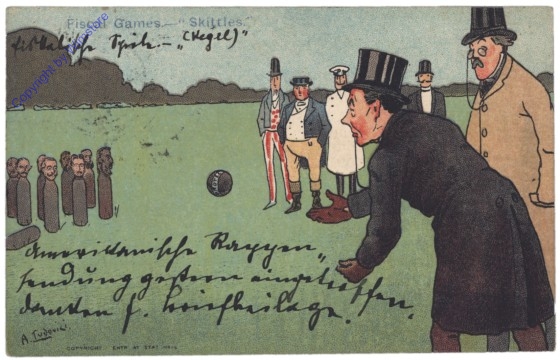 Fiscal Games.— "Skittles.
fiskalische Spiele — "(Kegel)"
Copyright by oldthing
Amerikanische Kappen„
sendung gestern eingetroffen,
danken f. Briefbeilage.
A. Ludovici
COPYRIGHT ENTD AT STAT. HALL